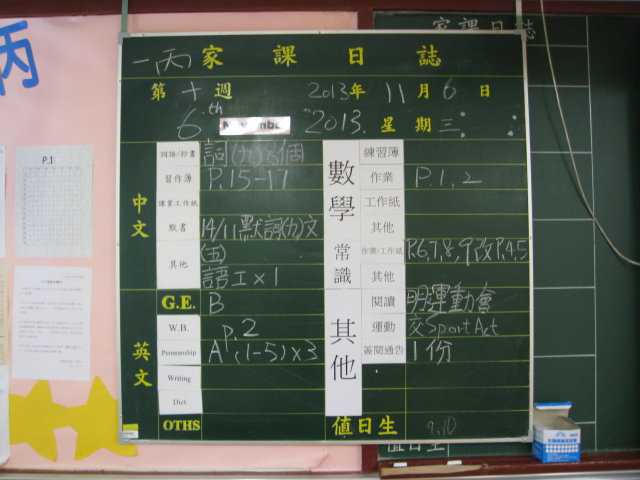 丙
家課日誌
一丙 家課日誌
第十週 2013年11月6日
6th November 2013. 星期三
中文
詞語/抄書 詞(九)8個
習作簿 P.15-17
課業工作紙
默書 14/11默詞(九)文(五)
其他 語工x1
英文
G.E. B
W.B. P.2
Penmanship A (1-5)x3
Writing
Dict.
OTHS
數學
練習簿
作業 P.1,2
工作紙
其他
常識
作業/工作紙 P.6,7,8,9改P.4,5
其他
其他
閱讀 明運動會
運動 交Sport Act
簽閱通告 1份
值日生 9,10
值日生
P.1